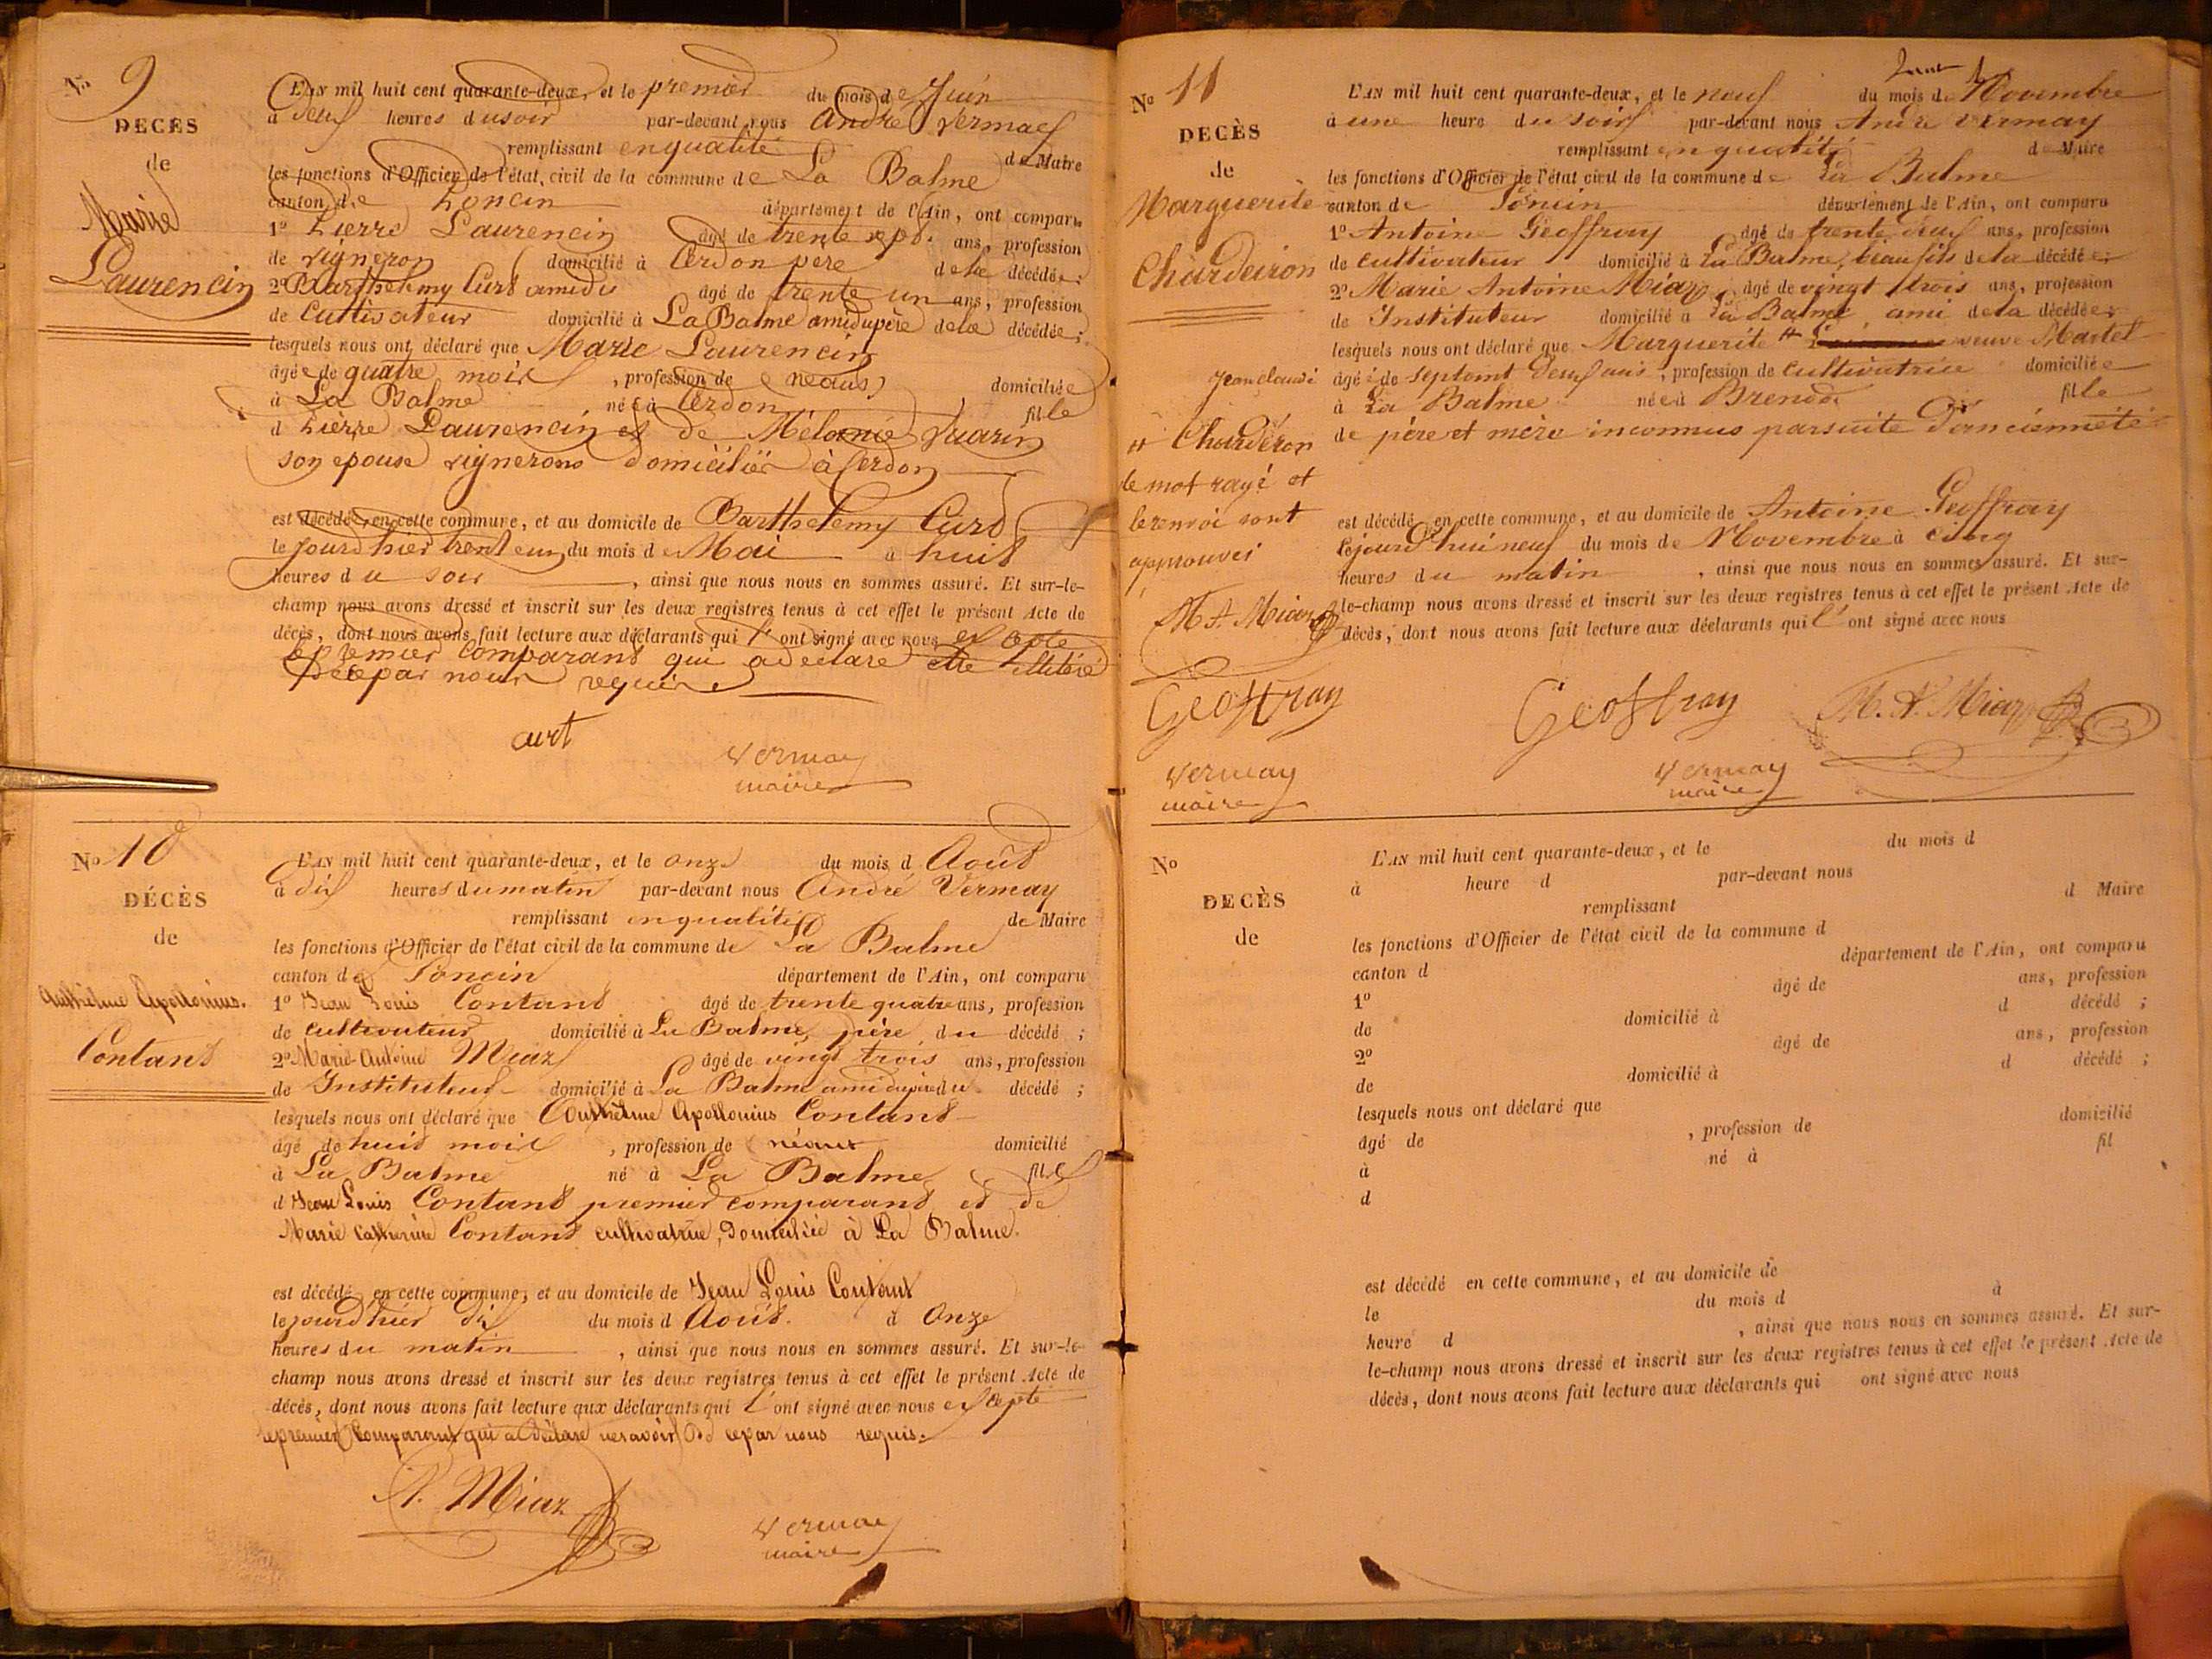 No 9
DECÈS
de
Marie
Laurencin
L'AN mil huit cent quarante-deux, et le premier du mois de Juin
à deux heures du soir par-devant nous André Vermay
remplissant en qualité de Maire
les fonctions d'Officier de l'état civil de la commune de La Balme
canton de Poncin département de l'Ain, ont comparu
1o Pierre Laurencin âgé de trente sept ans, profession
de vigneron domicilié à Cerdon père de la décédée;
2o Barthelemy Curt amidu âgé de trente un ans, profession
de Cultivateur domicilié à La Balme ami du père de la décédée;
lesquels nous ont déclaré que Marie Laurencin
âgée de quatre mois, profession de (néant) domiciliée
à La Balme née à Cerdon fille
d Pierre Laurencin et de Mélanie Guarin
son epouse vignerons domiciliés à Cerdon
est décédée en cette commune, et au domicile de Barthelemy Curt
le jourd'hier trent eun du mois de Mai à huit
heures du soir, ainsi que nous nous en sommes assuré. Et sur-le-
champ nous avons dressé et inscrit sur les deux registres tenus à cet effet le présent Acte de
décès, dont nous avons fait lecture aux déclarants qui l'ont signé avec nous excepte
le premier comparant qui a declaré etre illitéré
de ce par nous requis
curt
Vermay
maire
No 10
DÉCÈS
de
Anthelme Apollonius.
Contant
L'AN mil huit cent quarante-deux, et le onze du mois d Août
à dix heures du matin par-devant nous André Vermay
remplissant en qualité de Maire
les fonctions d'Officier de l'état civil de la commune de La Balme
canton de Poncin département de l'Ain, ont comparu
1o Jean Louis Contant âgé de trente quatre ans, profession
de cultivateur domicilié à La Balme, père du décédé ;
2o Marie-Antoine Miaz âgé de vingt trois ans, profession
de Instituteur domicilié à La Balme ami du père du décédé ;
lesquels nous ont déclaré que Anthelme Apollonius Contant
âgé de huit mois, profession de (néant domicilié
à La Balme né à La Balme fils
d Jean Louis Contant premier comparant et de
Marie Catherine Contant cultivatrice, Domiciliée à La Balme.
est décédé en cette commune, et au domicile de Jean Louis Contant
le jourd'hier dix du mois d Août. à Onze
heures du matin, ainsi que nous nous en sommes assuré. Et sur-le-
champ nous avons dressé et inscrit sur les deux registres tenus à cet effet le présent Acte de
décès, dont nous avons fait lecture aux déclarants qui l'ont signé avec nous excepte
le premier Comparant qui a déclaré ne savoir de ce par nous requis.
A. Miaz
Vermay
maire
No 11
DECÈS
de
Marguerite
Chardeiron
L'AN mil huit cent quarante-deux, et le neuf du mois de Novembre
à une heure du soir par-devant nous André Vermay
remplissant en qualité de Maire
les fonctions d'Officier de l'état civil de la commune de La Balme
canton de Poncin département de l'Ain, ont comparu
1o Antoine Geoffray âgé de trente deux ans, profession
de cultivateur domicilié à La Balme, beau fils de la décédée;
2o Marie Antoine Miaz, âgé de vingt trois ans, profession
de Instituteur domicilié à La Balme, ami de la décédée;
lesquels nous ont déclaré que Marguerite # veuve Martel
Jean claude
âgée de septant deux ans, profession de cultivatrice domiciliée
à La Balme née à Brenod fille
de père et mère inconnus par suite d'ancienneté
# Chardéron
le mot rayé et
le renvoi sont
approuvés
M A. Miaz
Geoffray
Vermay
maire
est décédé en cette commune, et au domicile de Antoine Geoffray
le jourd'hui neuf du mois de Novembre à cinq
heures du matin, ainsi que nous nous en sommes assuré. Et sur-
le-champ nous avons dressé et inscrit sur les deux registres tenus à cet effet le présent Acte de
décès, dont nous avons fait lecture aux déclarants qui l'ont signé avec nous
Geoffray
M. A. Miaz
Vermay
maire
No
DECÈS
de
L'AN mil huit cent quarante-deux, et le du mois d
à heure d par-devant nous
remplissant d Maire
les fonctions d'Officier de l'état civil de la commune d
canton d département de l'Ain, ont comparu
1o âgé de ans, profession
de domicilié à d décédé ;
2o âgé de ans, profession
de domicilié à d décédé ;
lesquels nous ont déclaré que
âgé de , profession de domicilié
à né à fil
d
est décédé en cette commune, et au domicile de
le du mois d à
heure d , ainsi que nous nous en sommes assuré. Et sur-
le-champ nous avons dressé et inscrit sur les deux registres tenus à cet effet le présent Acte de
décès, dont nous avons fait lecture aux déclarants qui ont signé avec nous